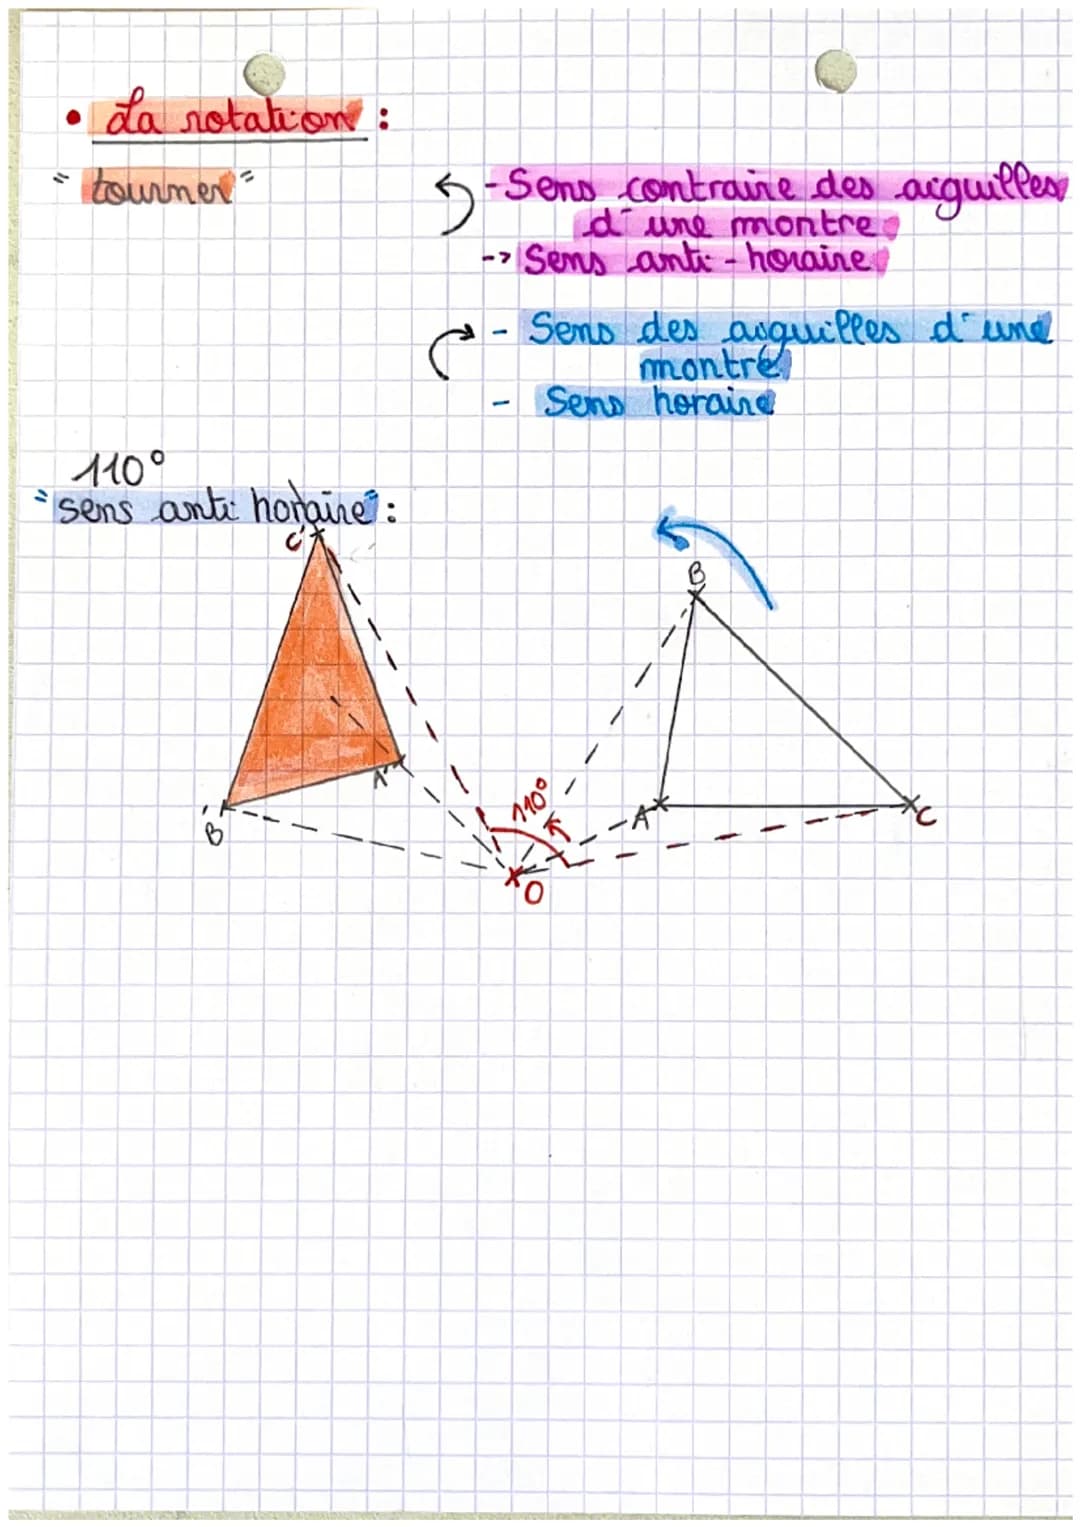 • La rotation :
"tourner"
- Sens contraire des aiguilles
d'une montre
-> Sens anti-horaire
- Sens des aiguilles d'une
montre
- Sens horaire
110°
"sens anti horaire" :
C'
B
A'
110°
A
C
B'
O